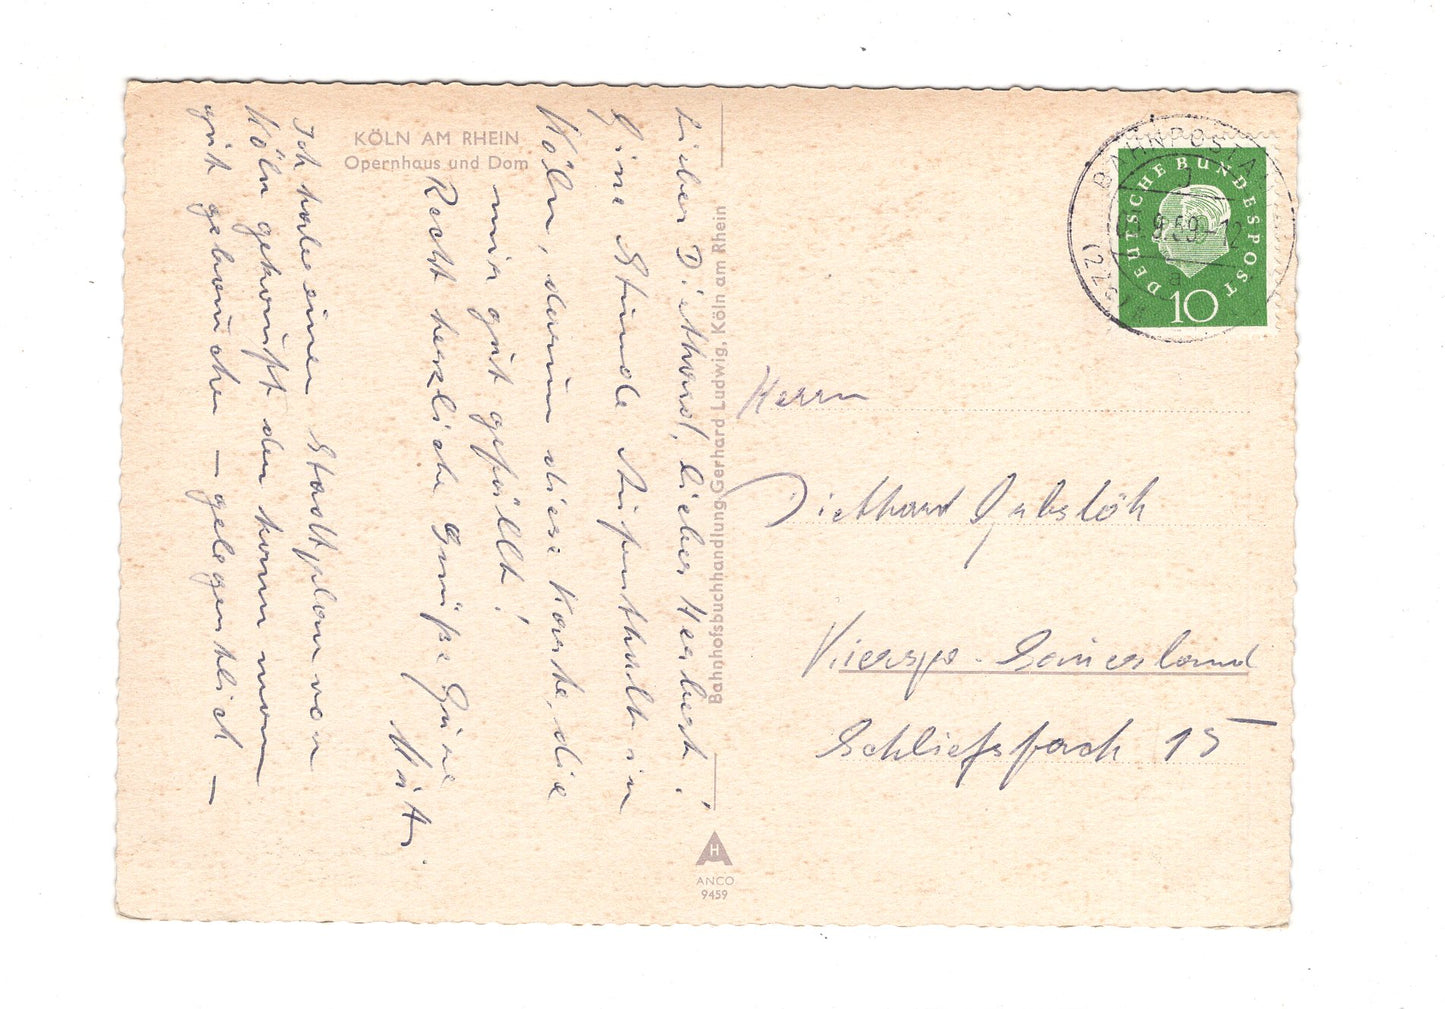 KÖLN AM RHEIN
Opernhaus und Dom
Lieber Diethard, lieber Herbert!
Eine Stunde Aufenthalt in
Köln, darum diese Karte, die
mir gut gefällt!
Recht herzliche Grüße Eure
Ich habe einen Stadtplan von
Köln gekauft den kann man
gut gebrauchen – gelegentlich –
Bahnhofsbuchhandlung Gerhard Ludwig, Köln am Rhein
H
ANCO
9459
BAHNPOSTA
9.59-12
a
DEUTSCHE BUNDESPOST
10
Herrn
Diethard
Kierspe-Sauerland
Schließfach 15